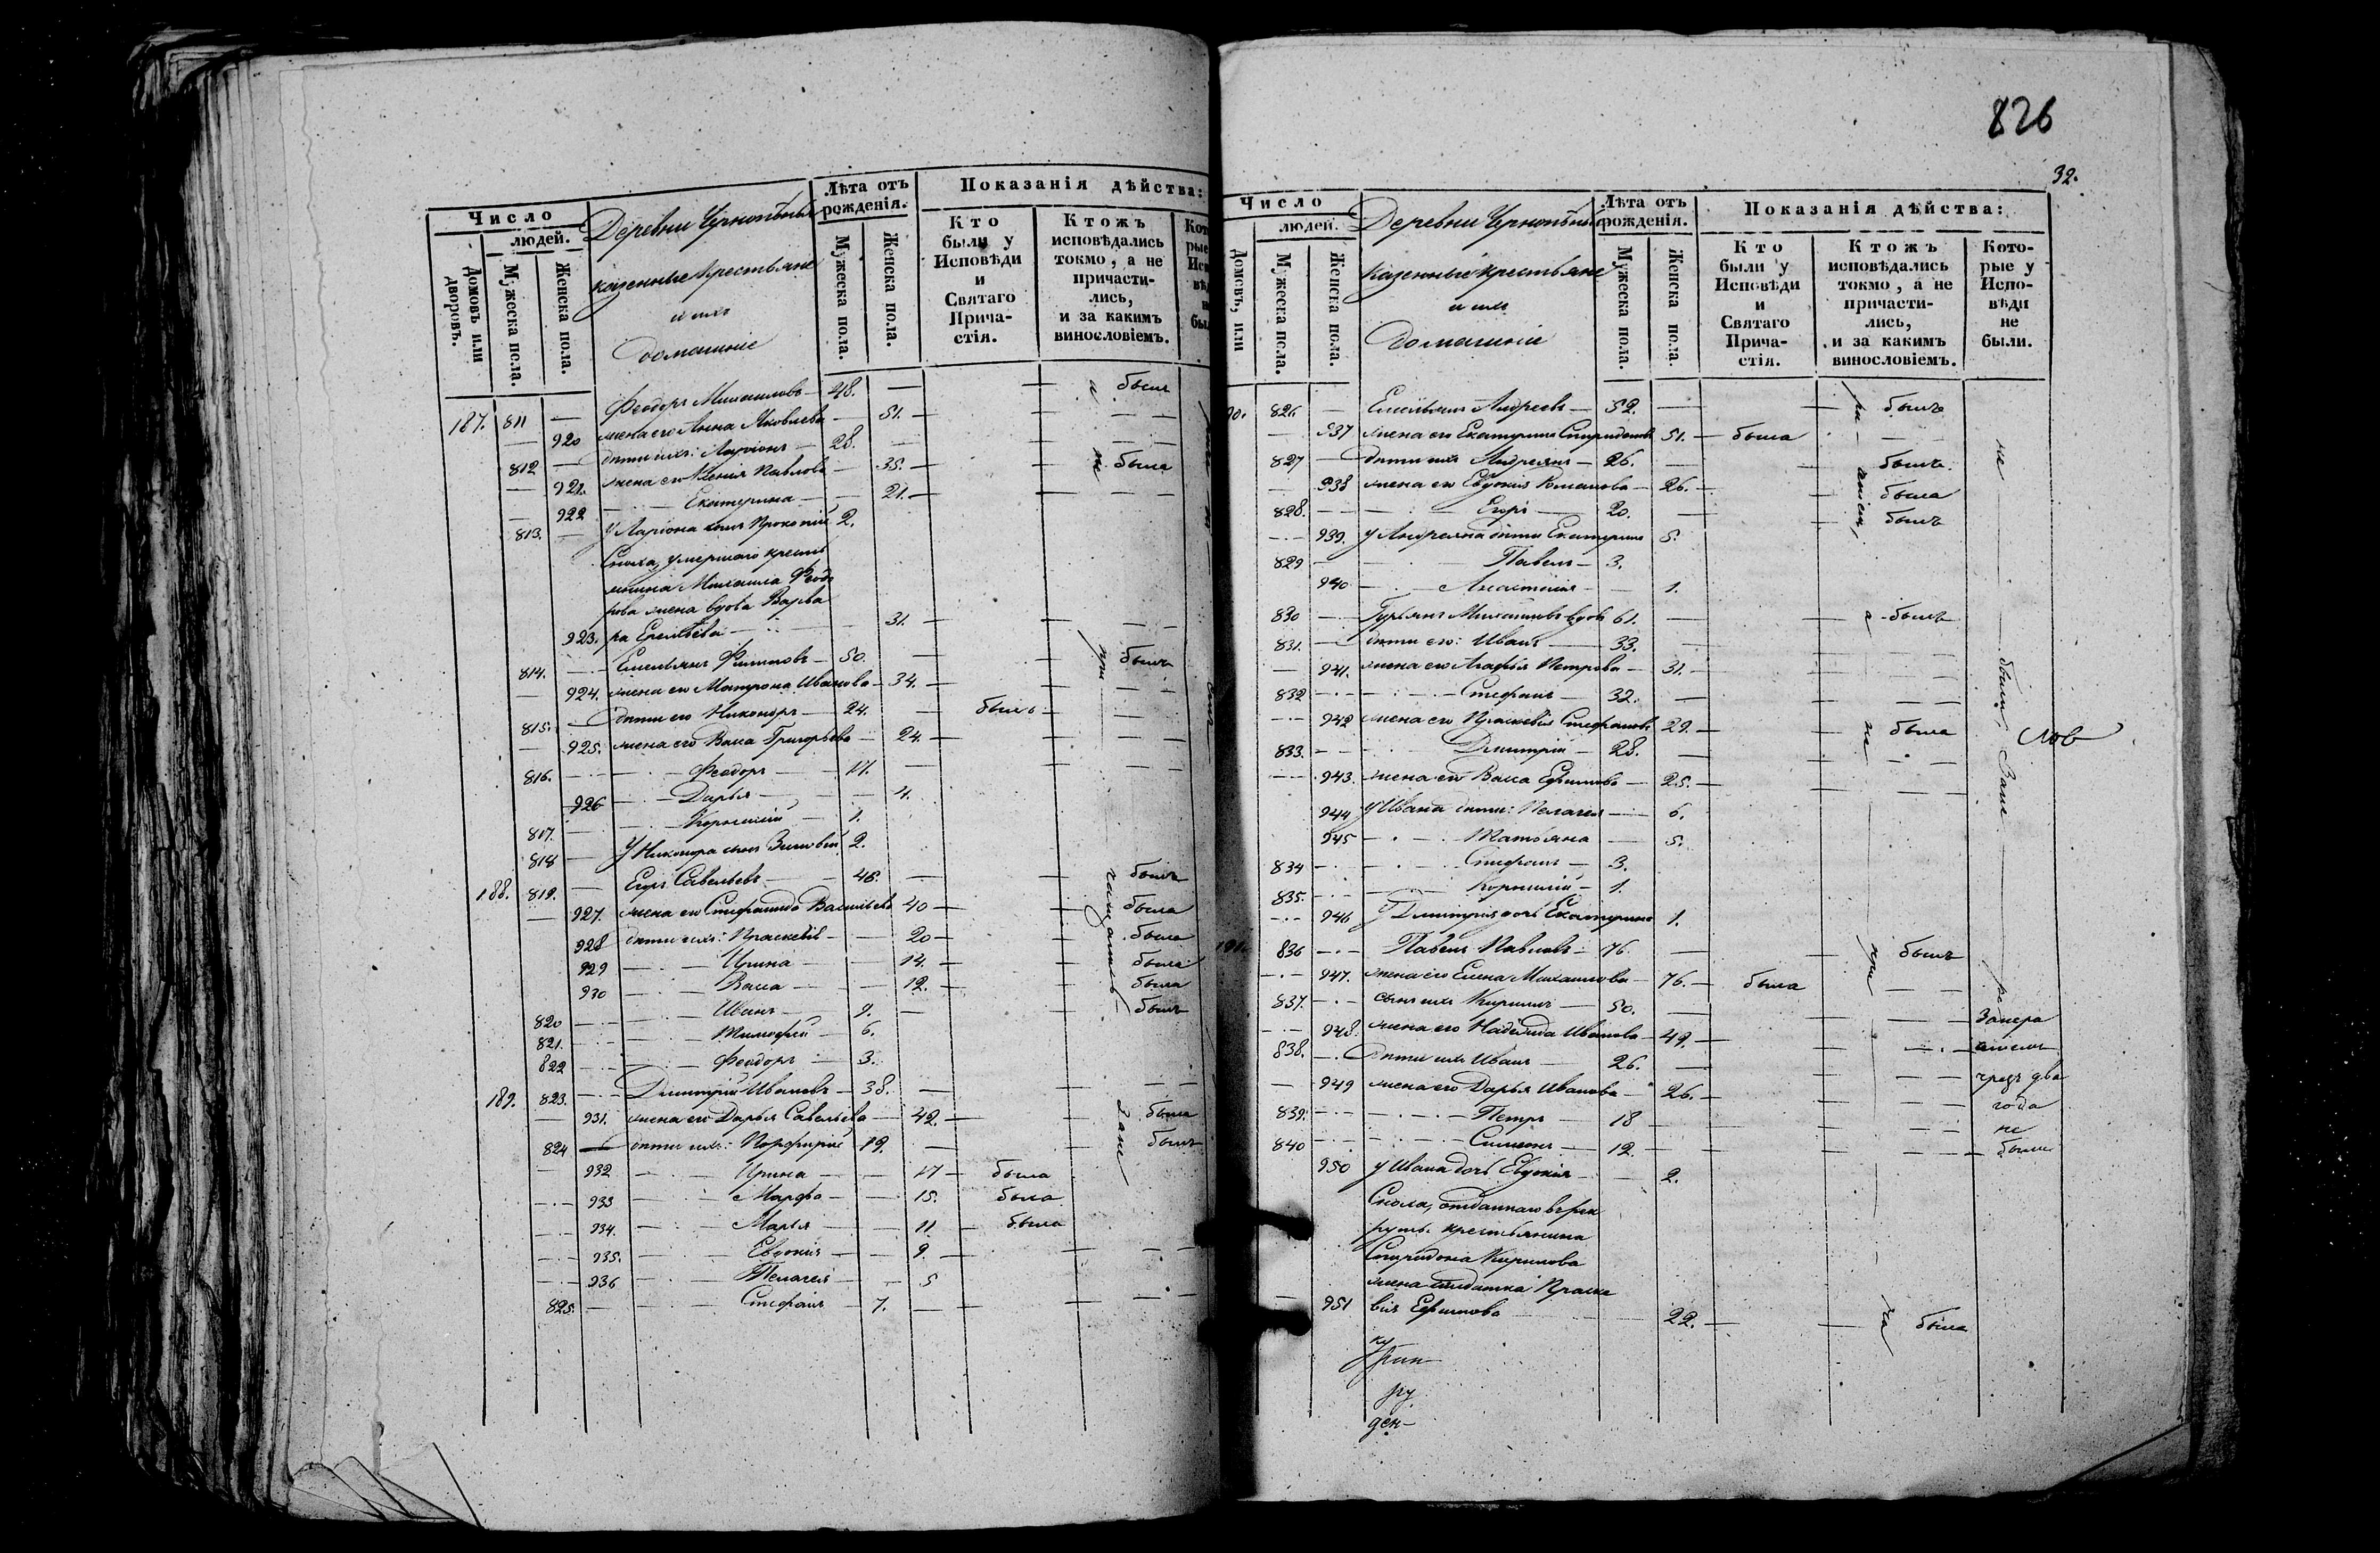 Число
людей.
Домовъ или дворовъ.
Мужеска пола.
Женска пола.
Деревни
казенные крестьяне
и ихъ
домашніе
Лѣта отъ рожденія.
Мужеска пола.
Женска пола.
Показанія дѣйства:
Кто были у Исповѣди и Святаго Прича-стія.
Ктожъ исповѣдались токмо, а не причасти-лись, и за какимъ винословіемъ.
187. 811 — Феодоръ Михаиловъ — 48. — былъ
— 920 жена его Анна Яковлева — 51. —
812 — дѣти ихъ: Ларіонъ — 28. —
— 921. жена его Ксенія Павлова — 35. — была
— 922 Екатерина — 21. —
813. — У Ларіона сынъ Прокопій 2.
Сноха, умершаго кресть
янина Михаила Феодо
рова жена вдова Варва
923. ра — 31. —
814. — Емельянъ Филиповъ — 50. — былъ
— 924. жена его Матрона Иванова — 34. —
815. — дѣти его Никоноръ — 24. — былъ
— 925. жена его Васса Григорьева — 24. —
816. — Феодоръ — 17. —
926 — Дарья — 4.
817. — Корнилій — 1.
818 — У Никонора сынъ Зиновій 2.
188. 819. — Егоръ Савельевъ — 46. — былъ
— 927. жена его Стефанида Васильева 40 — была
928 дѣти ихъ: Праскевія — 20 — была
929 — Ирина — 14. — была
930 — Васса — 12. — была
820 — Иванъ — 9. — былъ
821. — Тимофей — 6.
822 — Феодоръ — 3.
189. 823. — Дмитрій Ивановъ — 38. —
— 931. жена его Дарья Савельева — 42. — была
824 — дѣти ихъ: Порфирій 19. — былъ
— 932 — Ирина — 17 — была
— 933 — Марфа — 15. была
— 934. — Марья — 11 — была
— 935. — Евдокія — 9. —
— 936 — Пелагея — 5
825. — Стефанъ — 7. —
826
32.
Число
людей.
Домовъ, или
Мужеска пола.
Женска пола.
Деревни
казенные крестьяне
и ихъ
домашніе
Лѣта отъ рожденія.
Мужеска пола.
Женска пола.
Показанія дѣйства:
Кто были у Исповѣди и Святаго Прича-стія.
Ктожъ исповѣдались токмо, а не причасти-лись, и за какимъ винословіемъ.
Кото-рые у Испо-вѣди не были.
826. — Емельянъ Андреевъ — 52. — былъ
— 937 жена его Екатерина Спиридонова 51. — была
827 — дѣти ихъ Андреянъ — 26. — былъ
— 938 жена его Евдокія Романова — 26. — была
828. — Егоръ — 20. — былъ
— 939. У Андреяна дѣти Екатерина 5.
829 — Павелъ — 3.
940 — Анастасія — 1.
830 — Гурьянъ Михаиловъ вдовъ 61. — былъ
831. — дѣти его: Иванъ — 33. —
— 941. жена его Агафья Петрова — 31. —
832 — Стефанъ — 32. —
— 942 жена его Праскевія Стефанова 29. — была
833. — Дмитрій — 28. —
— 943. жена его Васса Ефимова — 25. —
944 У Ивана дѣти: Пелагея — 6.
945 — Татьяна — 5.
834 — Стефанъ — 3.
835. — Корнилій — 1.
— 946 У Дмитрія дочь Екатерина 1.
836 — Павелъ Павловъ — 76. — былъ
— 947. жена его Елена Михаилова — 76. — была
837. — сынъ ихъ Кирилъ — 50. —
— 948. жена его Надежда Иванова — 49. —
838. — дѣти ихъ Иванъ — 26. —
— 949 жена его Дарья Иванова — 26. —
839. — Петръ — 18 —
840 — Симеонъ — 12. —
950 У Ивана дочь Евдокія — 2.
Сноха, отданнаго въ рек
руты крестьянина
Спиридона Кирилова
жена солдатка Праске
951 вія Ефимова — 22. — была
чрезъ два
года
не
были